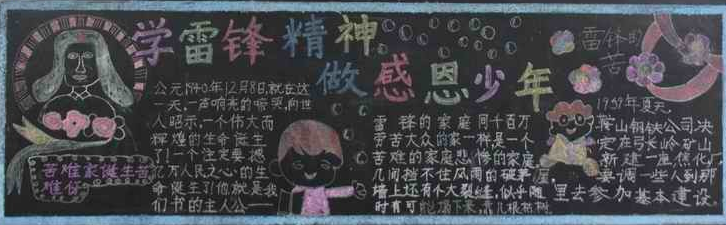 学雷锋精神
做感恩少年
公元1940年12月8日,就在这
一天,一声响亮的啼哭,向世
人昭示,一个伟大而
辉煌的生命诞生
了!一个注定要撼
亿万人民之心的生
命诞生了!他就是我
们书的主人公一
苦难家诞生苦
难份
雷锋的家庭同千百万
劳苦大众的家一样,是一个
苦难的家庭悲惨的家庭
几间挡不住风雨的破茅屋,
墙上还有个大裂缝,似乎随
时有可能塌下来,靠几根枯树
雷锋的
苦
1959年夏天,
鞍山钢铁公司决
定在弓长岭矿山
新建一座焦化厂
要调一些人到那
里去参加基本建设